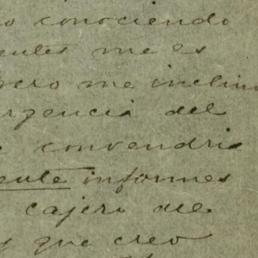 o conociendo
entes me es
pero me inclin
urgencia del
convendria
ente informes
cajero del
y que creo